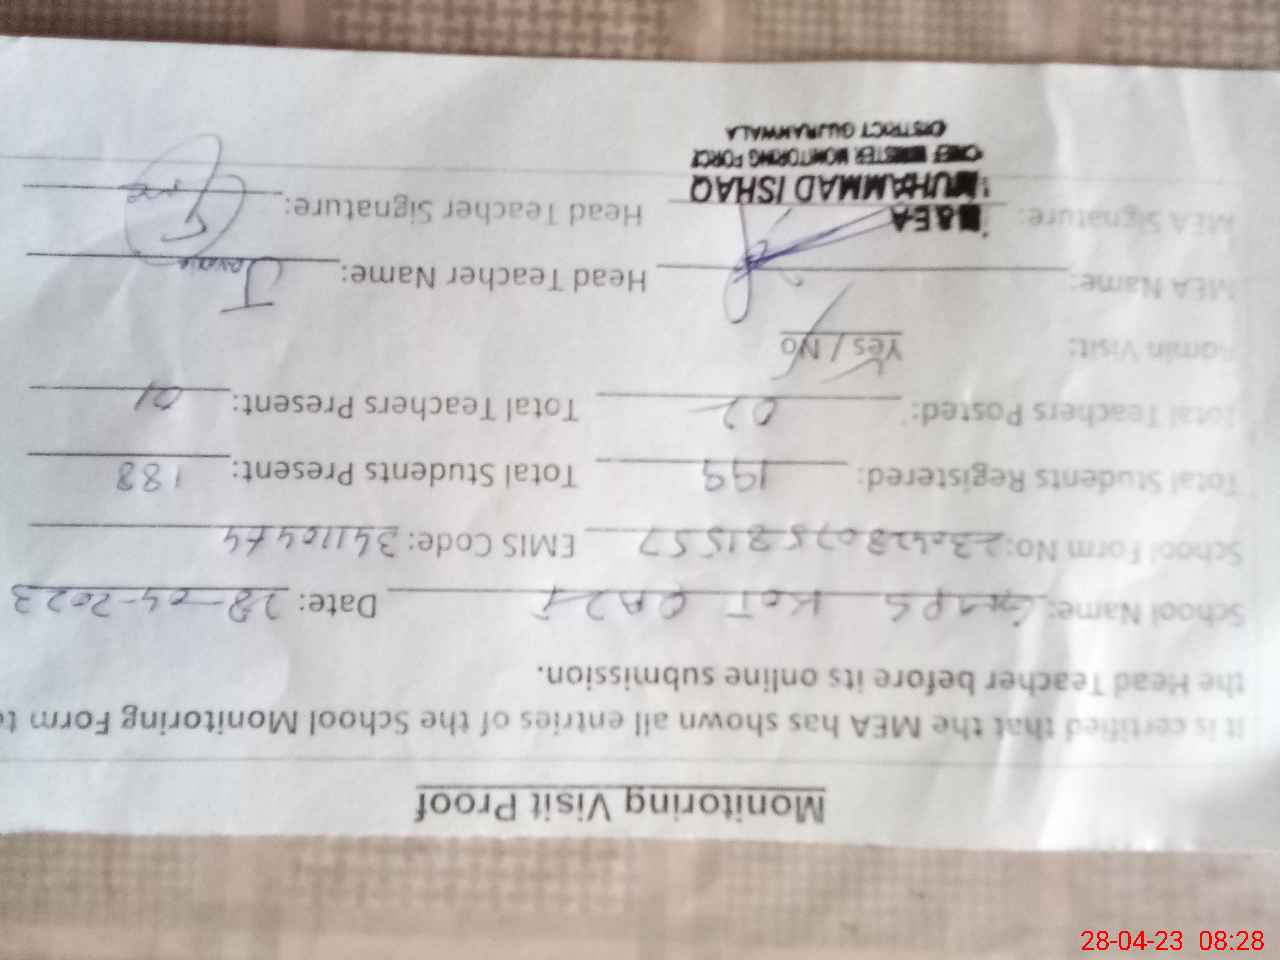 Monitoring Visit Proof
It is certified that the MEA has shown all entries of the School Monitoring Form t
the Head Teacher before its online submission.
School Name: GMPS KOT QAZI Date: 28-04-2023
School Form No: 230428075 81557 EMIS Code: 34110474
Total Students Registered: 199 Total Students Present: 188
Total Teachers Posted: 02 Total Teachers Present: 01
Admin Visit: Yes / No
MEA Name: Head Teacher Name:
MEA Signature: Head Teacher Signature:
M&EA
MUHAMMAD ISHAQ
CHIEF MINISTER MONITORING FORCE
DISTRICT GUJRANWALA
28-04-23 08:28